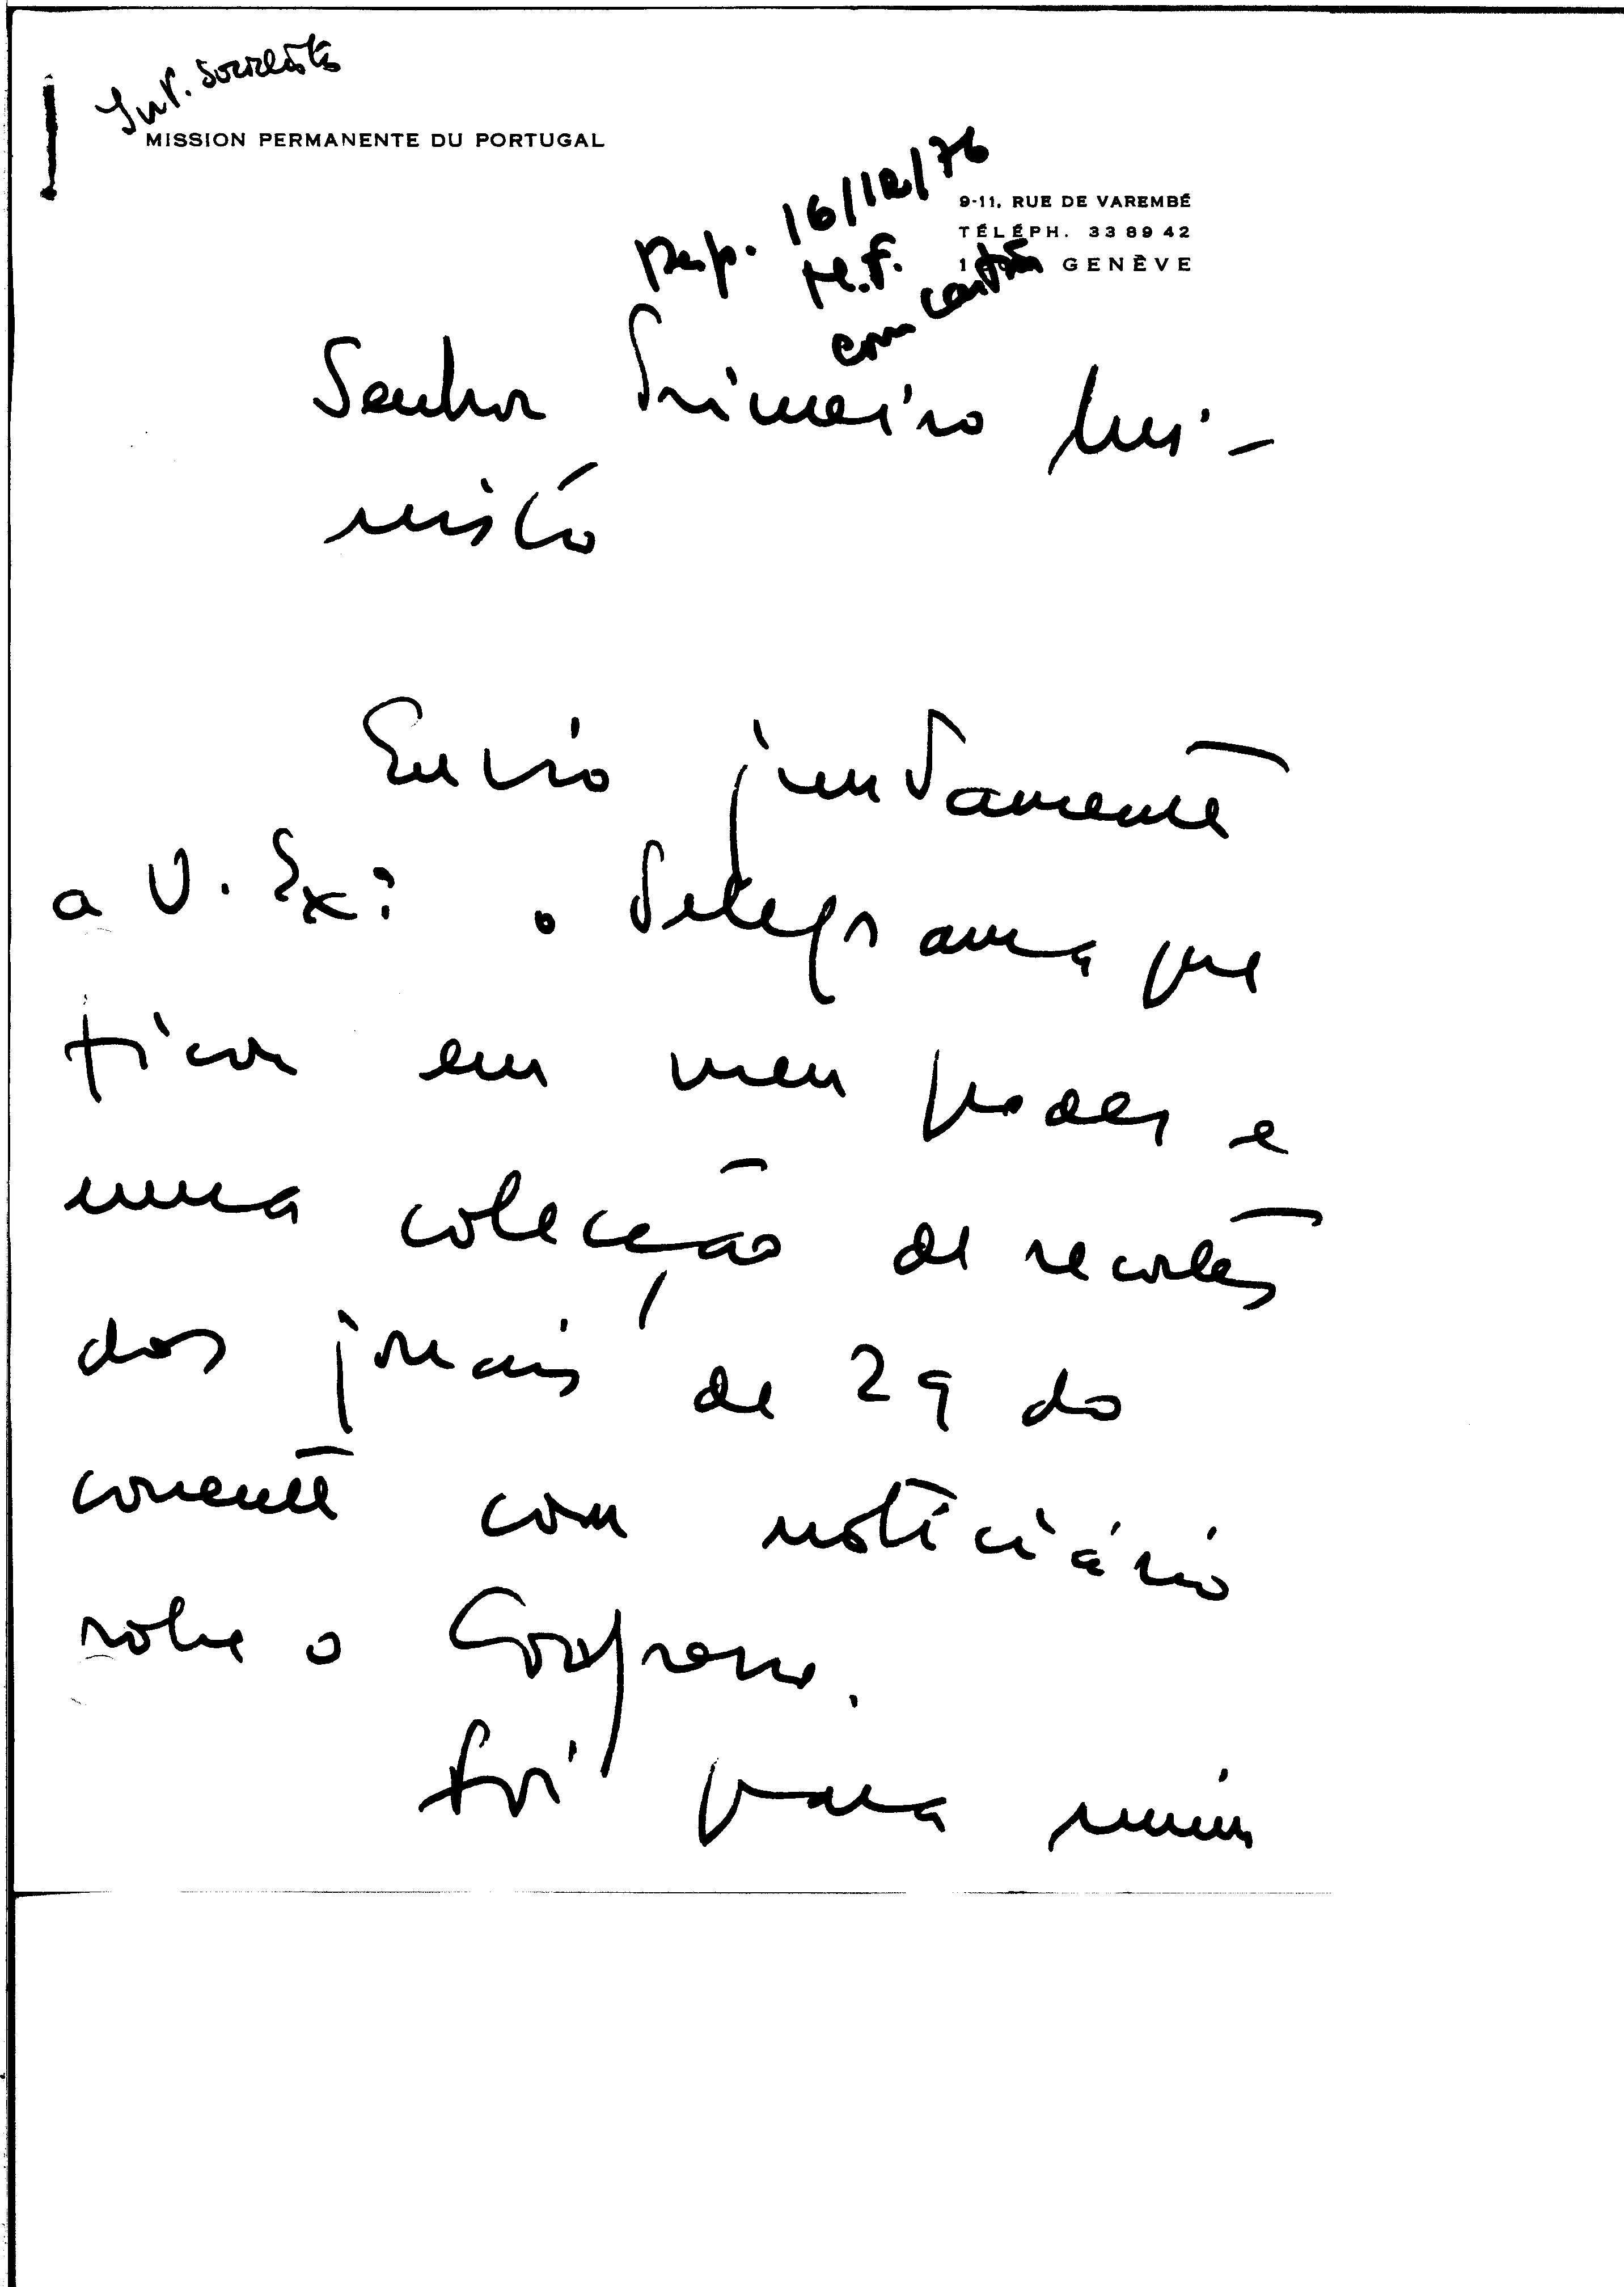 Int. Socialista
MISSION PERMANENTE DU PORTUGAL
Resp. 16/12/76
9-11, RUE DE VAREMBÉ
TÉLÉPH. 33 89 42
M.F.
GENÈVE
com cartão
Senhor Primeiro Mi-
nistro
Envio juntamente
a V. Exª o telegrama que
ficou em meu poder e
uma colecção de recortes
dos jornais de 29 do
corrente com noticiário
sobre o Congresso.
Foi para mim